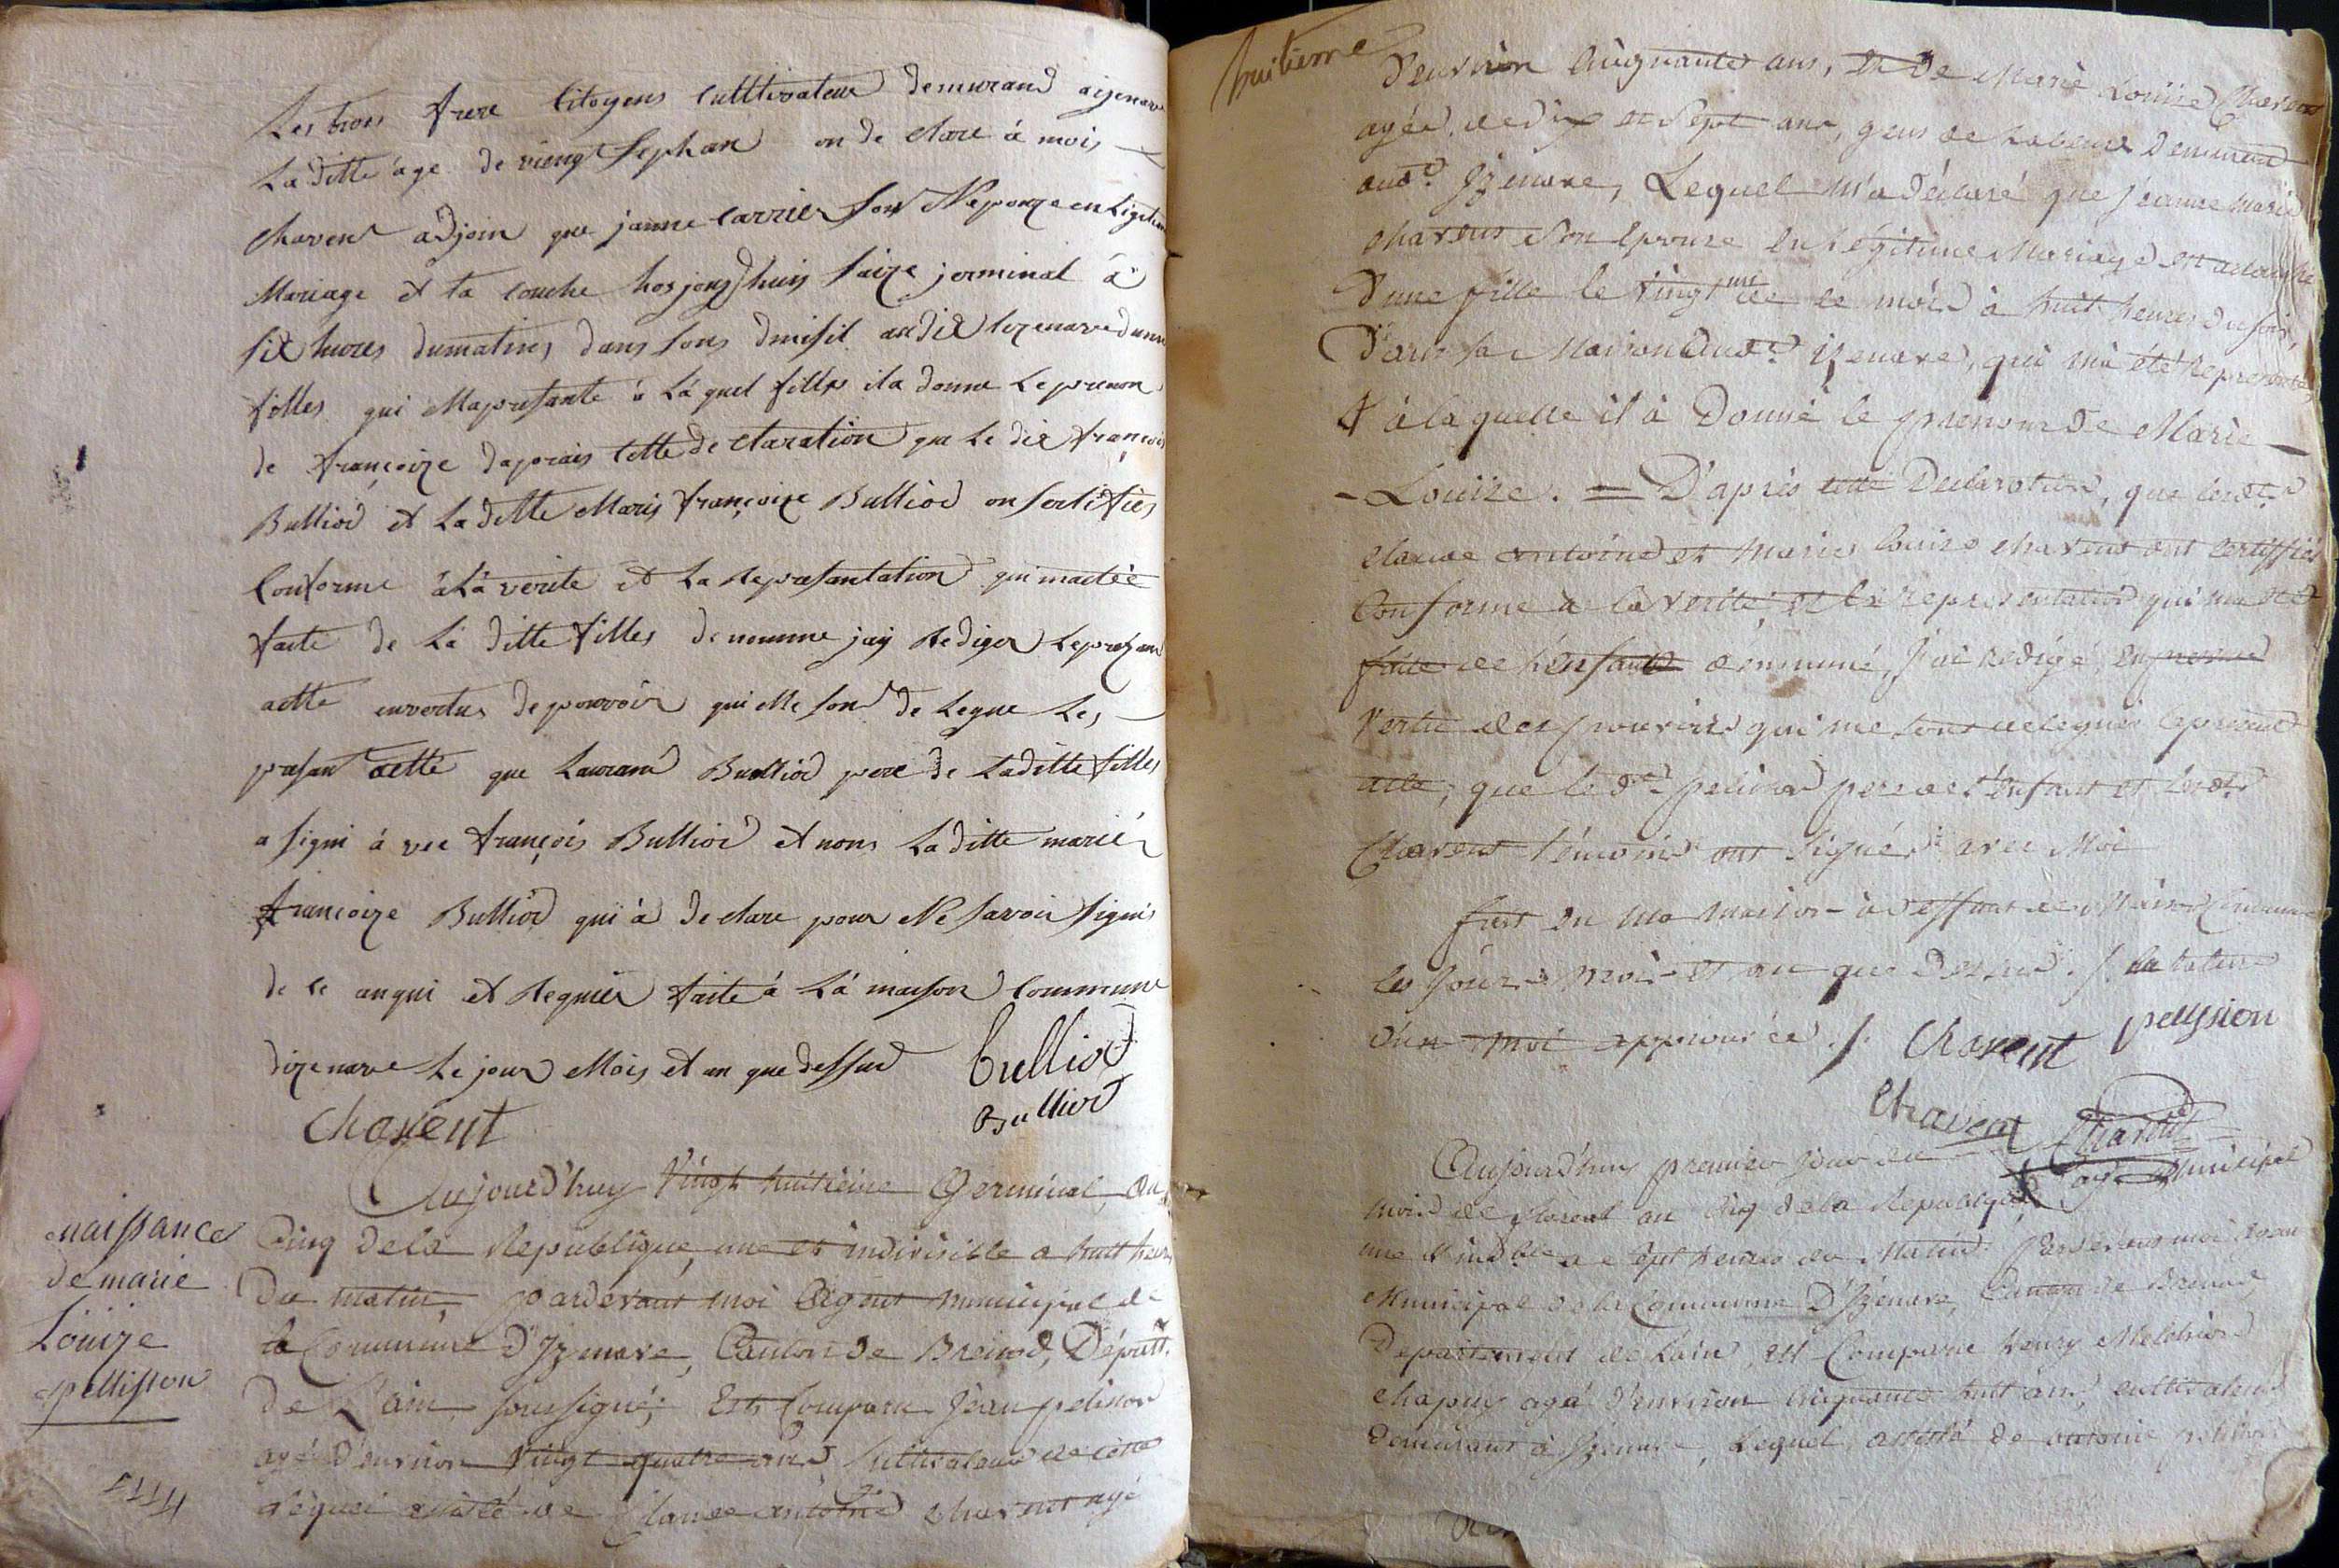 Les trois frere citoyens culttivateur demurand
Laditte age de viengt sephan on de clare à mois
Chavent adjoin que janne carrier son Nepouze en
Mariage et ta couche hosjourdhuis saize jerminal à
six hures dumatins dans sons dmisil audit izenave dune
filles qui Mapresante à la quel filles ila donne Leprenon
de françoize daprais cette de claration que Le dit françois
Bulliod et Laditte Maris françoize Bulliod on sertifies
Conforme à La verite et La Represantation qui maetée
faite de La ditte filles denomme jay Rediger Leprezan
actte envertus depouvoir qui Me son de Legue Les
presant actte que Laurand Bulliod pere de Laditte filles
a signi à vec françois Bulliod et nons Laditte marié
françoize Bulliod qui à de clare pour Ne savoir signis
de ce anqui et Requier faite à La maison Commune
dizenave Le jour Mois et an que dessus Bulliod
Chavent Bulliod
Aujourd'huy Vingt huitieme Germinal, an
Cinq de la Republique, une et indivisible a huit heures
Du matin, pardevant moi Agent municipal de
la Commune D'Izenave, Canton de Brenod, Départt.
De L'ain, soussigné; Est Comparu Jean pelisson
agé d'environ Vingt quatre ans, Cultivateur
Lequel assisté de Claude antoine chavent agé
naissance
de marie
Louize
pellisson
huitieme
D'environ Cinquante ans, et de Marie Louize Chavent
agée de dix et sept ans, gens de Labeur Demeurant
aud.t Izenave, Lequel m'a Déclaré que jeanne Marie
chavent son epouze en Légitime Mariage est accouchée
D'une fille le Vingt de ce mois à huit heures du soir,
Dans sa Maison aud.t izenave, qui m'a été Represantée,
& à la quelle il à Donné le prenom de Marie
- Louize. = D'après cette Declaration, que lesd.ts
claude antoine et Marie Louize chavent ont Certiffiés
Conforme a la Verité, et la representation qui ma eté
faite de l'enfant denommé, J'ai Redigé, en
Vertu des pouvoirs qui me sont delegués le present
acte, que le d.t pelisson pere de l'enfant et lesd.ts
Chavent temoins ont signés avec Moi
fait en ma maison à deffaut de Maison Commune
les jour mois et an que dessus. /. la rature
d'un moi approuvée ./. Chavent pellysson
Chavent Chavent
Aujourd'huy premier jour du Agt. Municipal
mois de floreal an cinq de la Republique
une & ind.ble a sept heures du Matin. Pardevant moi Agent
Municipal de la Commune D'Izenave, Canton de Brenod,
Departement de Lain, est Comparu henry Melchior
chapuy agé d'environ cinquante huit ans, cultivateur
demeurant à Izenave, Lequel, assisté de antoine